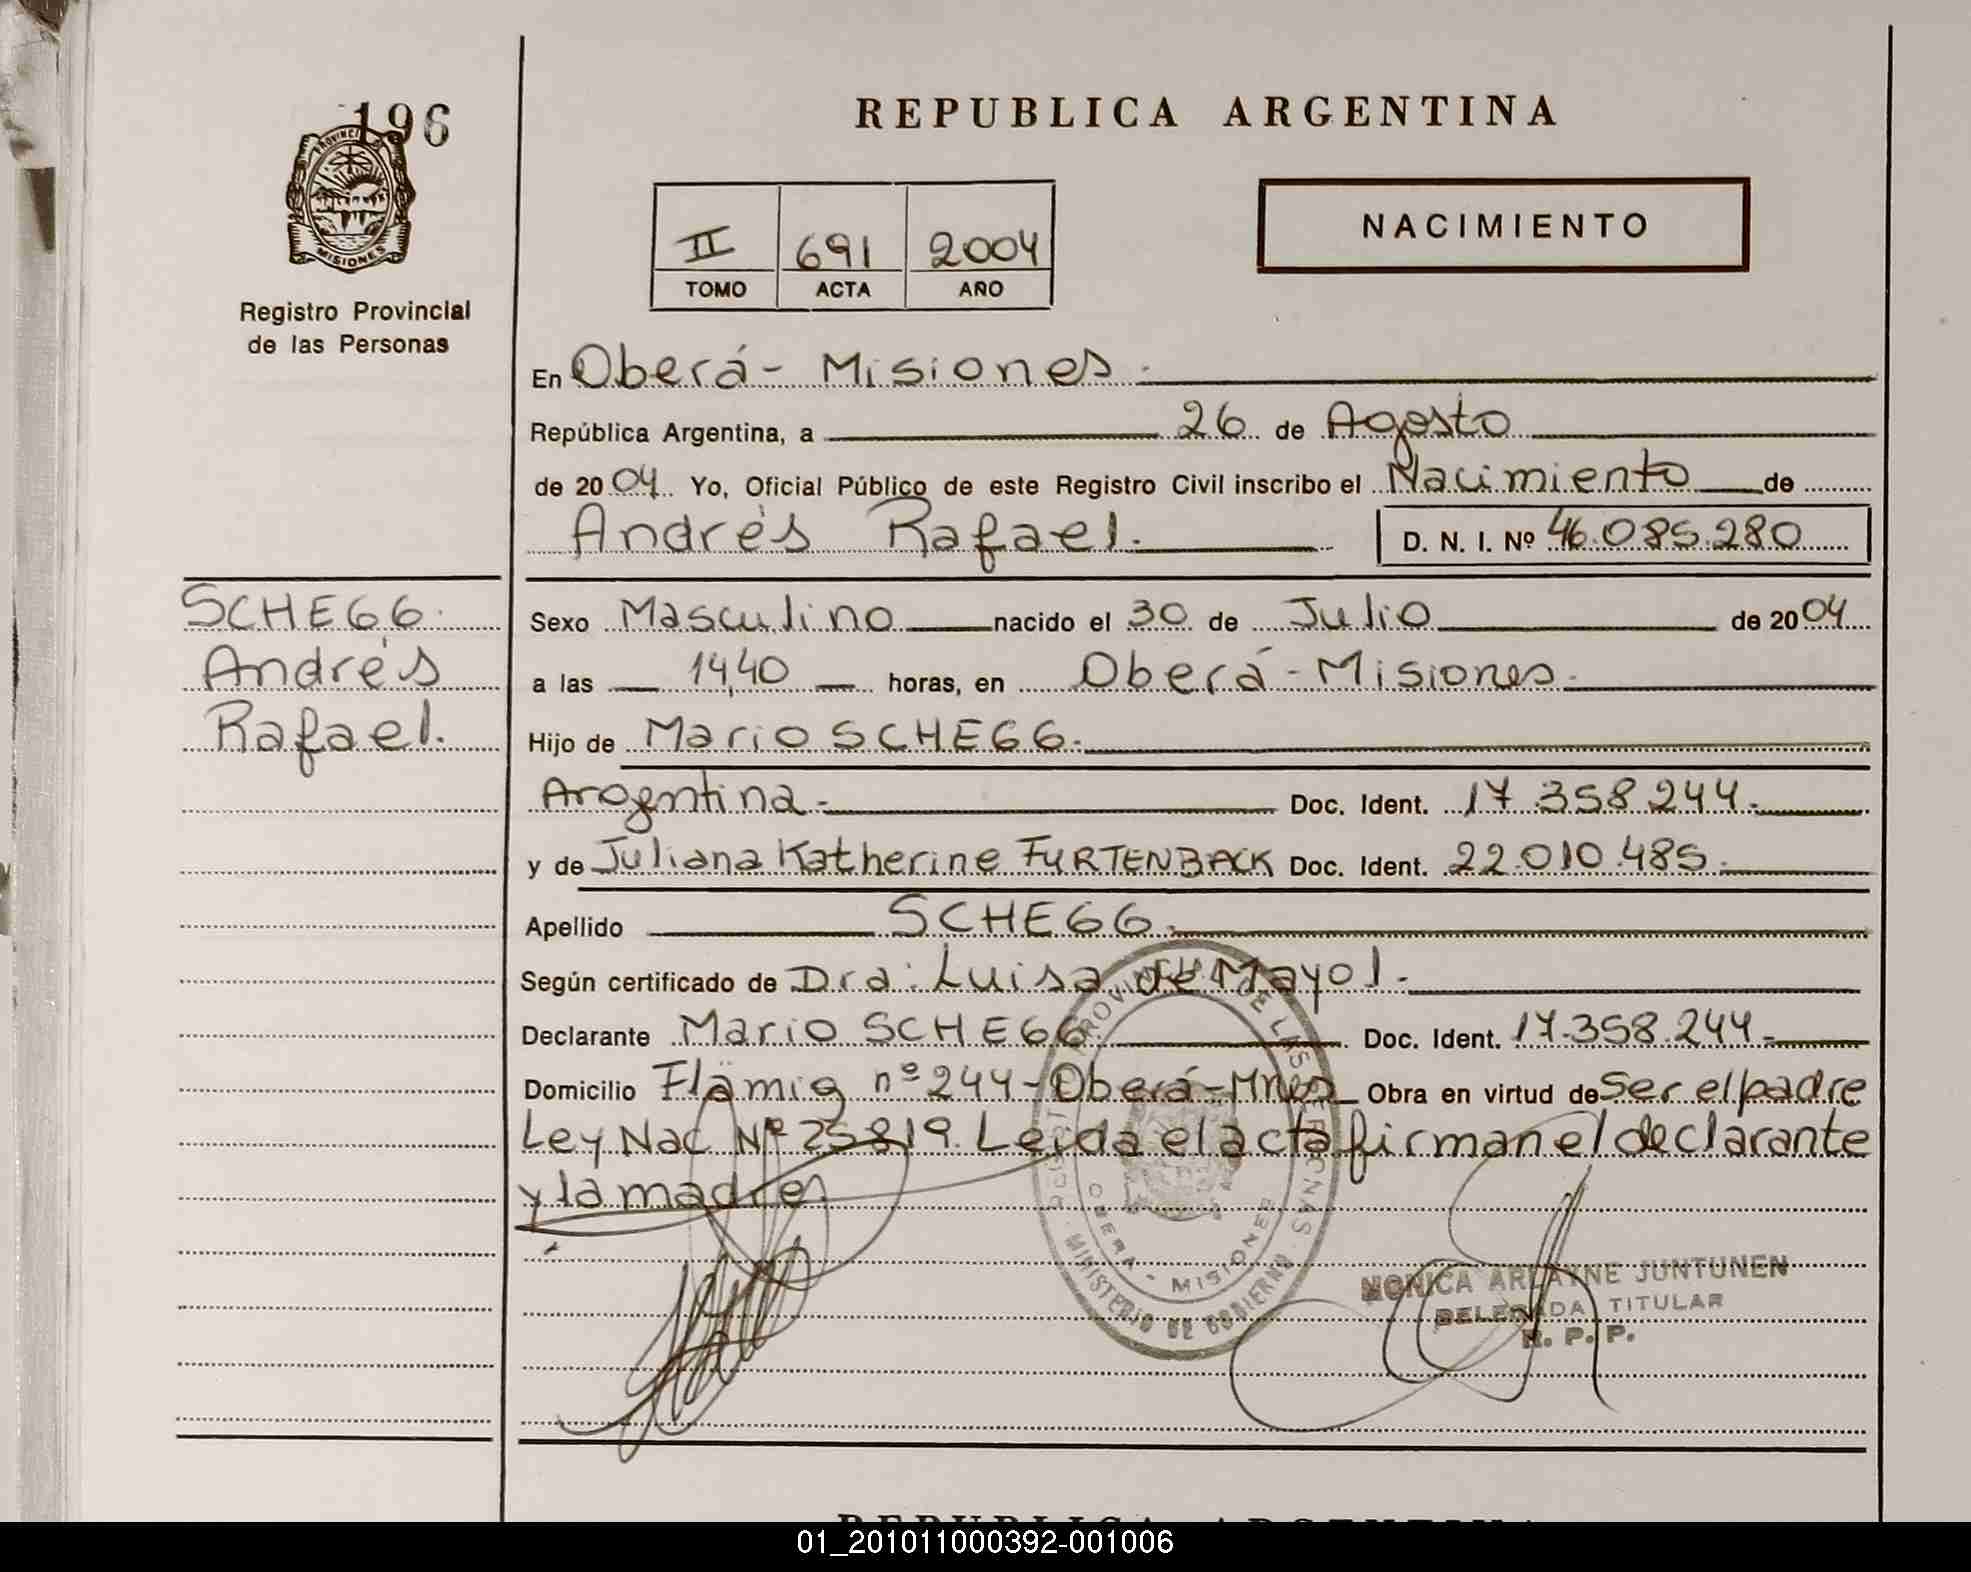 196
PROVINCIA DE
MISIONES
Registro Provincial
de las Personas
REPUBLICA ARGENTINA
II 691 2004
TOMO ACTA AÑO
NACIMIENTO
En Oberá - Misiones.
República Argentina, a 26 de Agosto
de 2004. Yo, Oficial Público de este Registro Civil inscribo el Nacimiento de
Andrés Rafael. D. N. I. Nº 46.085.280
SCHEGG.
Andrés
Rafael.
Sexo Masculino nacido el 30 de Julio de 2004
a las 14,40 horas, en Oberá - Misiones.
Hijo de Mario SCHEGG.
Argentina.- Doc. Ident. 17.358.244.
y de Juliana Katherine FURTENBACK Doc. Ident. 22.010.485.
Apellido SCHEGG.
Según certificado de Dra: Luisa de Mayol.
Declarante Mario SCHEGG. Doc. Ident. 17.358.244.
Domicilio Flämig nº 244 - Oberá - Mnes Obra en virtud de Ser el padre
Ley Nac Nº 25819. Leida el acta firman el declarante
y la madre
PROVINCIAL DE LAS PERSONAS
OBERA - MISIONES
MINISTERIO DE GOBIERNO
MONICA ARLAYNE JUNTUNEN
DELEGADA TITULAR
R. P. P.
REPUBLICA ARGENTINA
01_201011000392-001006